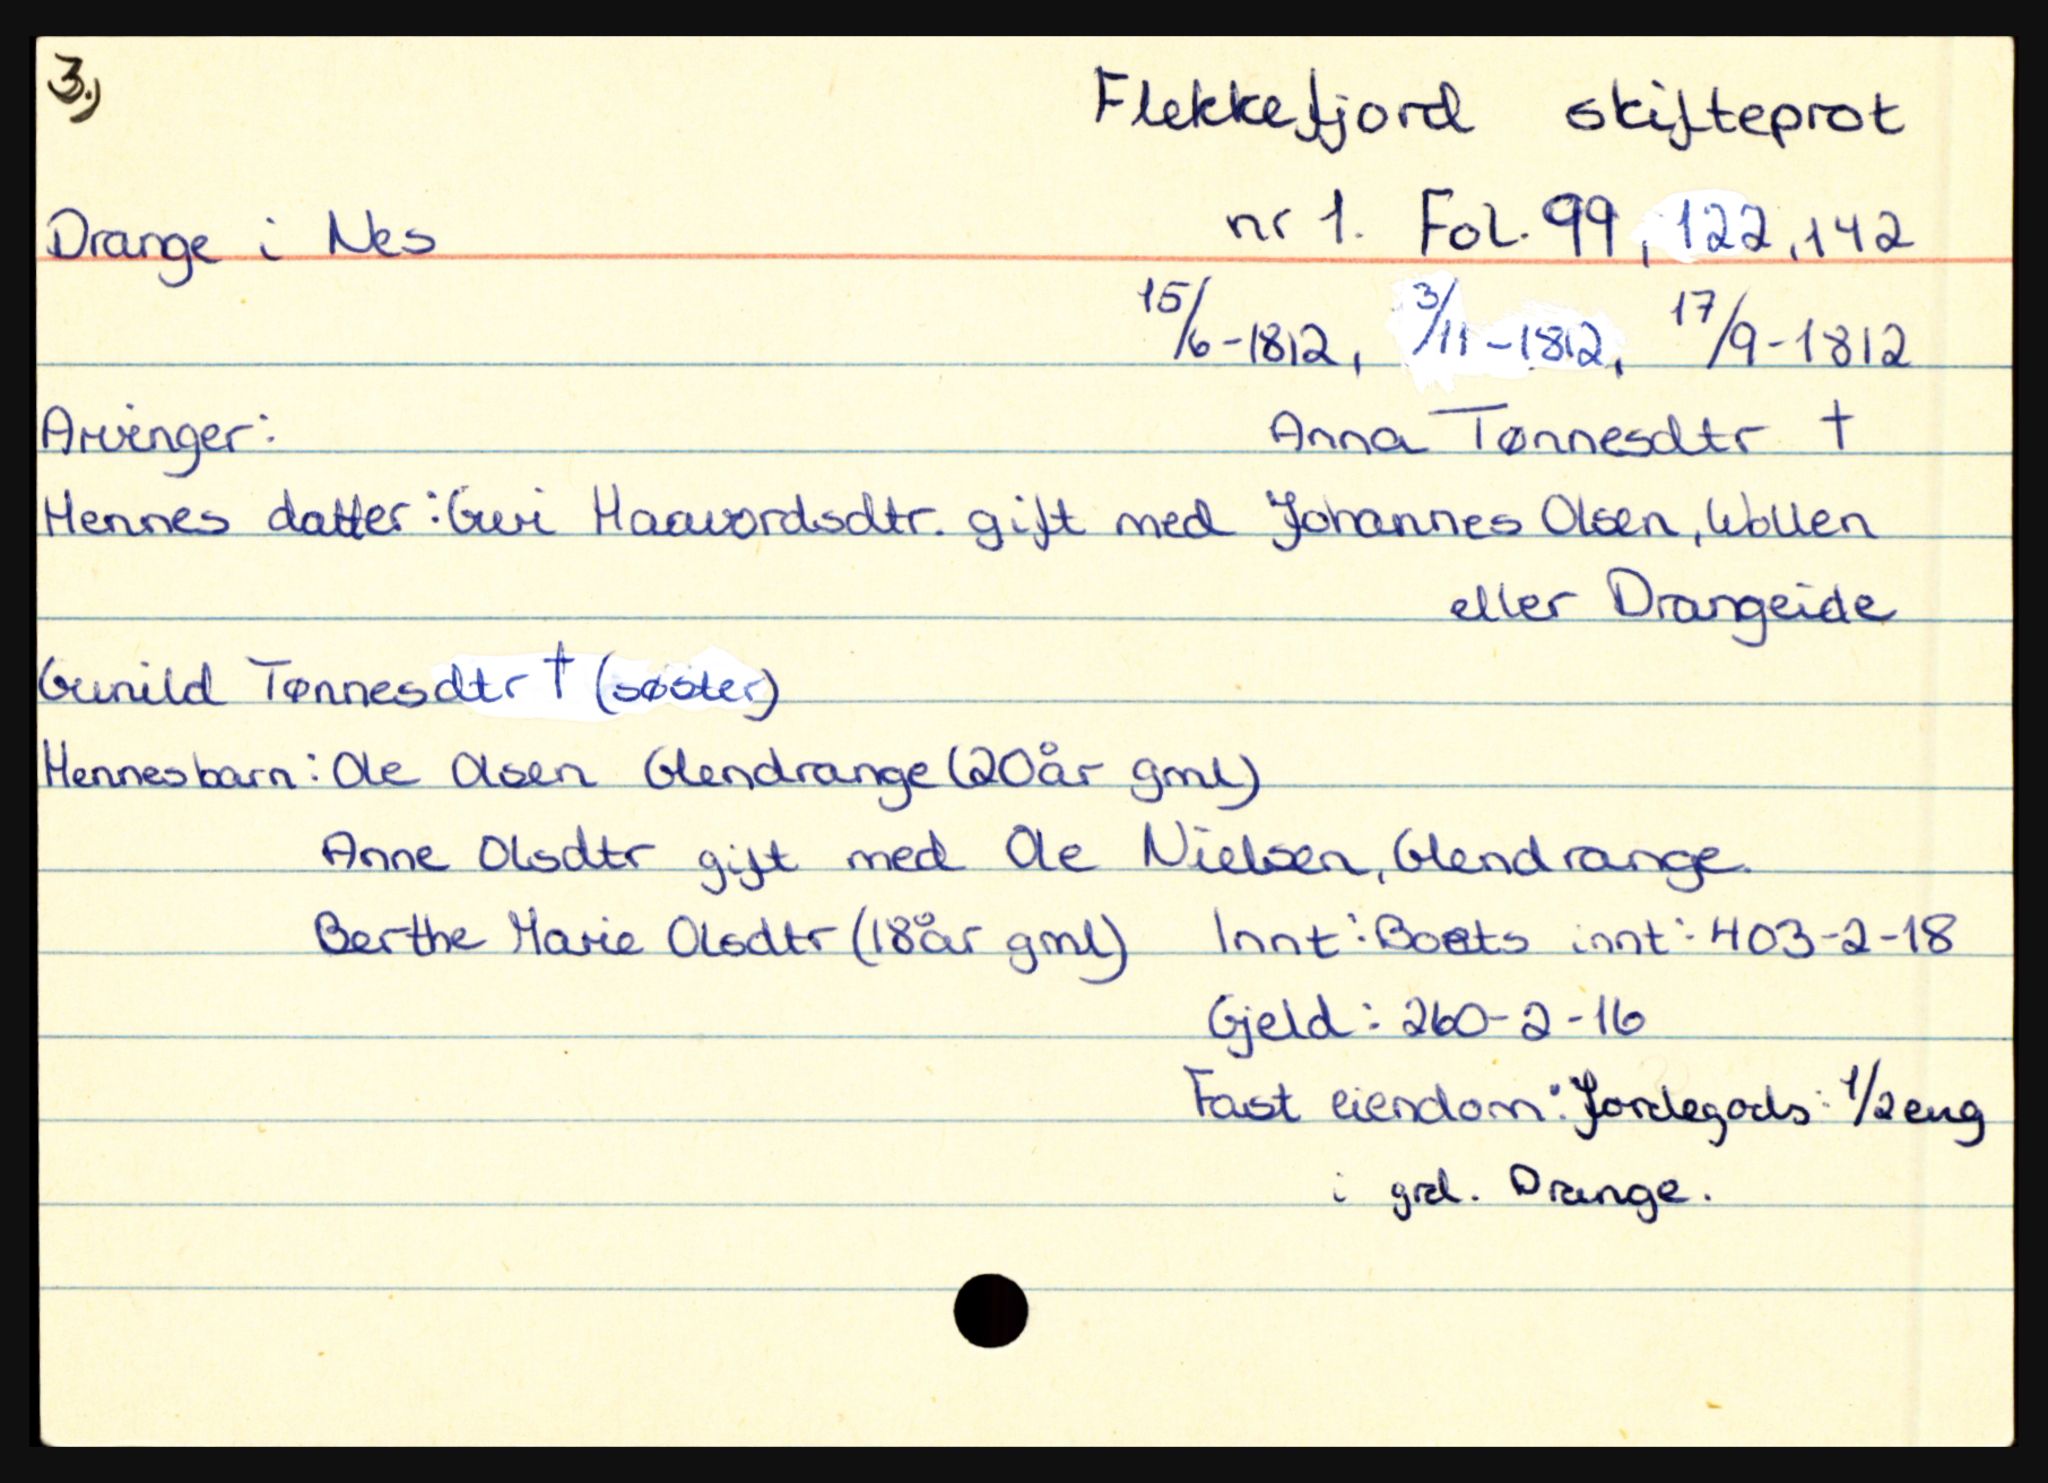 3.)
Flekkefjord skifteprot
Drange i Nes
nr 1. Fol. 99, 122, 142
15/6-1812, 3/11-1812, 17/9-1812
Arvinger:
Anna Tønnesdtr †
Hennes datter: Guri Haavordsdtr. gift med Johannes Olsen, Wollen
eller Drangeide
Gunild Tønnesdtr † (søster)
Hennes barn: Ole Olsen Glendrange (20 år gml)
Anne Olsdtr gift med Ole Nielsen, Glendrange.
Berthe Marie Olsdtr (18 år gml) Innt: Boets innt: 403-2-18
Gjeld: 260-2-16
Fast eiendom: Jordegods: 1/2 eng
i grd. Drange.